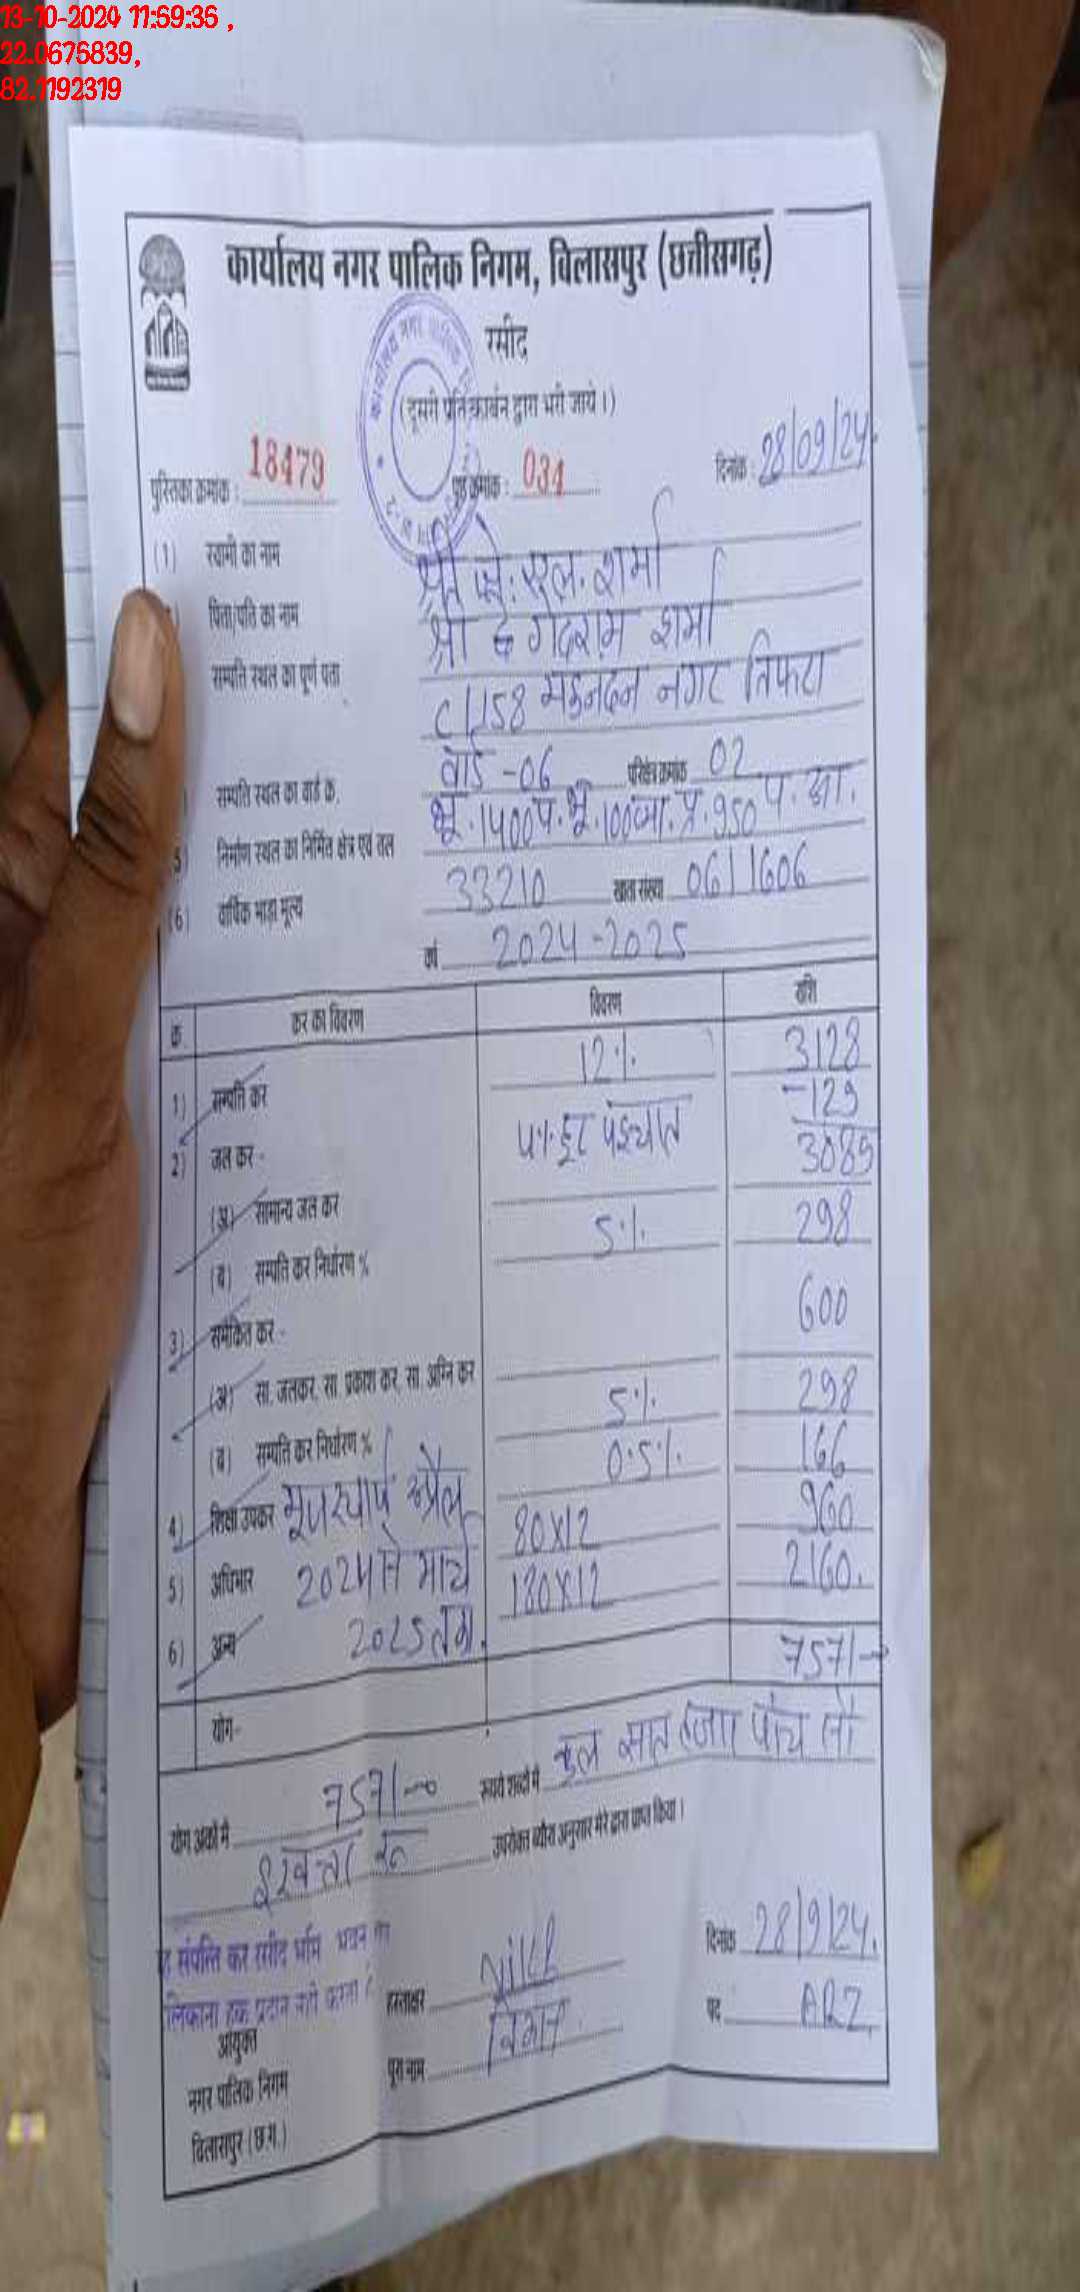 13-10-2024 11:59:36 ,
22.0675839,
82.1192319
कार्यालय नगर पालिक निगम, विलासपुर (छत्तीसगढ़)
रसीद
(दूसरी प्रति कार्बन द्वारा भरी जाये।)
पुस्तिका क्रमांक : 18479 पृष्ठ क्रमांक : 034 दिनांक : 28/09/24.
(1) स्वामी का नाम श्री जे. एल. शर्मा
पिता/पति का नाम श्री शर्मा
सम्पत्ति स्थल का पूर्ण पता C/158 नगर तिफरा
सम्पत्ति स्थल का वार्ड क्र. वार्ड -06 परिक्षेत्र क्रमांक 02
5) निर्माण स्थल का निर्मित क्षेत्र एवं तल भू. 1400 प. भू. 100 950 प.
(6) वार्षिक भाड़ा मूल्य 33210 खाता संख्या 0611606
वर्ष 2024-2025
क्र. कर का विवरण विवरण राशि
1) सम्पत्ति कर 12% 3128
-129
2) जल कर - 4% छूट पश्चात 3085
(अ) सामान्य जल कर
(ब) सम्पत्ति कर निर्धारण % 5% 298
3) समेकित कर -
(अ) सा. जलकर, सा. प्रकाश कर, सा. अग्नि कर 600
(ब) सम्पत्ति कर निर्धारण % 5% 298
4) शिक्षा उपकर अप्रैल 0.5% 166
5) अधिभार 2024 से मार्च 80x12 960
6) अन्य 2025 तक. 180x12 2160.
योग- 7571-00
योग अंकों में 7571-00 रूपये शब्दों में कुल सात हजार पांच सौ
इकहत्तर रू उपरोक्त ब्यौरा अनुसार मेरे द्वारा प्राप्त किया।
संपत्ति कर रसीद भूमि भवन का
हक प्रदान नही करता
हस्ताक्षर दिनांक 28/9/24.
आयुक्त
नगर पालिक निगम पूरा नाम पद
विलासपुर (छ.ग.)